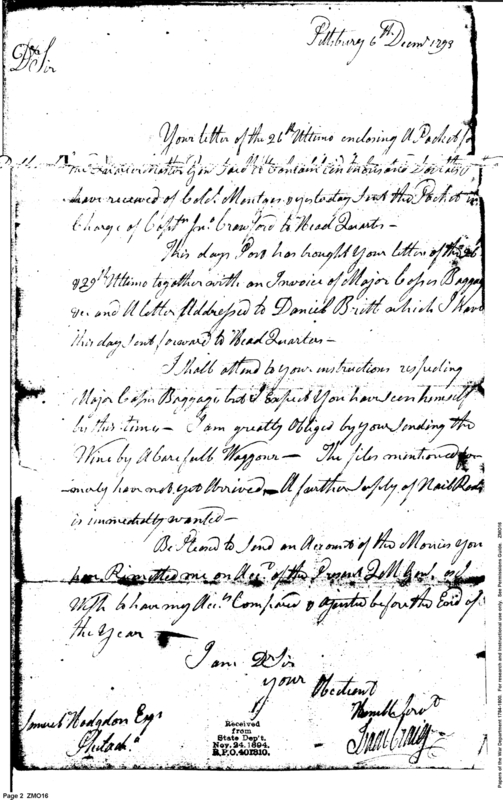 Pittsburg 6th Decmr 1793
Dr Sir
Your letter of the 26th Ultimo enclosing A Packet for
the Quarter Master Gen. Said to Contain Ten thousand Dollars I
have received of Colol. Montaes & yesterday Sent the Packet in
Charge of Captn Jno. Crawford to Head Quarts –
This days Post has brought Your letter of the 26
& 29th Ultimo together with an Invoice of Major Casses Baggag
&c and A letter Addressed to Daniel Britt which I have
this day Sent forward to Head Quarters –
I Shall attend to your instructions respecting
Major Casses Baggage but I Expect You have Seen himself
by this time – I am greatly Obliged by your Sending the
Wine by A Carefull Waggoner – The files mentioned for
merly have not yet Arrived – A further Suply of Nail Rods
is immediatly wanted –
Be Pleased to Send an Account of the Monies You
have Remitted me on Acct. of the Present Q M Genl. as I
Wish to have my Acct.s Compared & ajusted before the End of
the Year –
I am Dr Sir
your Obedient
Humble Servt
Isaac Craig
Samuel Hodgdon Esqr
Philada.
Received
from
State Dep't.
Nov. 24. 1894.
R.P.O. 401310.
Page 2 ZMO16
Papers of the War Department 1784-1800. For research and instructional use only. See Permissions Guide. ZMO16